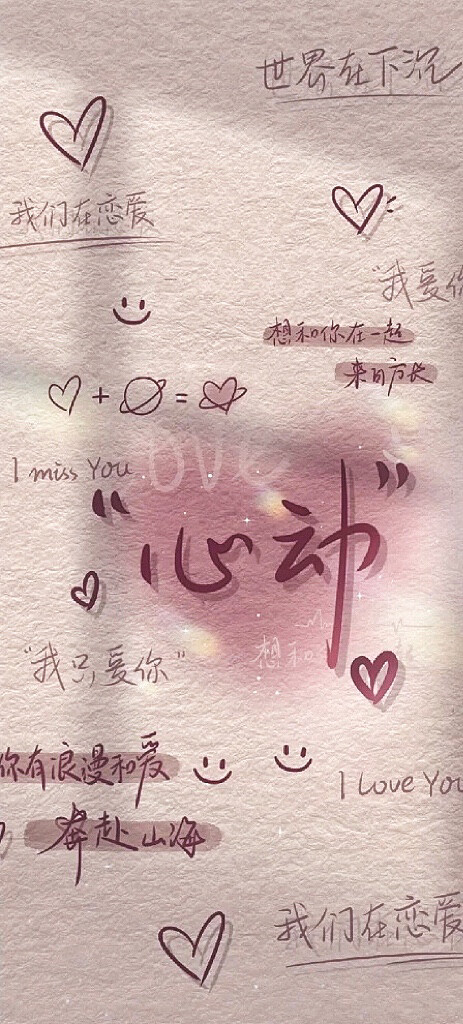 世界在下沉
我们在恋爱
"我爱你
想和你在一起
来日方长
+ =
I miss You
Love
“心动”
想和
"我只爱你"
你有浪漫和爱
I Love You
奔赴山海
我们在恋爱